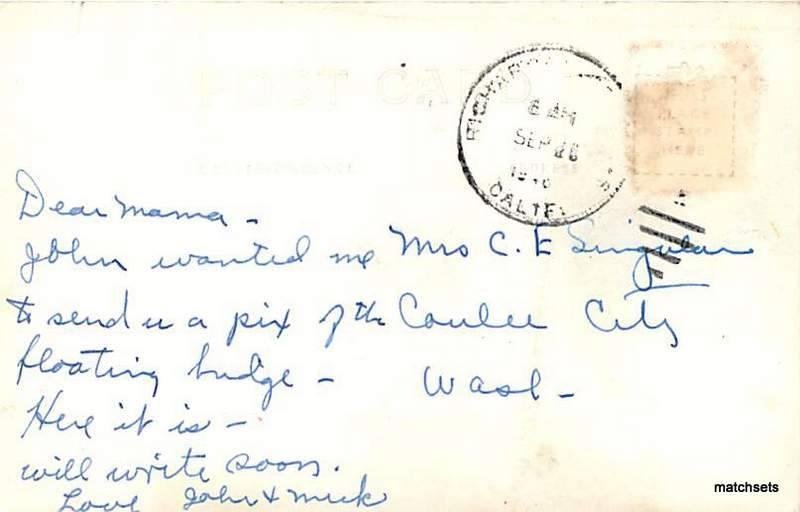 POST CARD
CORRESPONDENCE
ADDRESS
PLACE
STAMP
HERE
6 AM
SEP 26
CALIF
Dear Mama -
John wanted me
to send u a pix of the
floating bridge -
Here it is -
will write soon.
Love John &
Mrs C. E
Coulee City
Wash -
matchsets